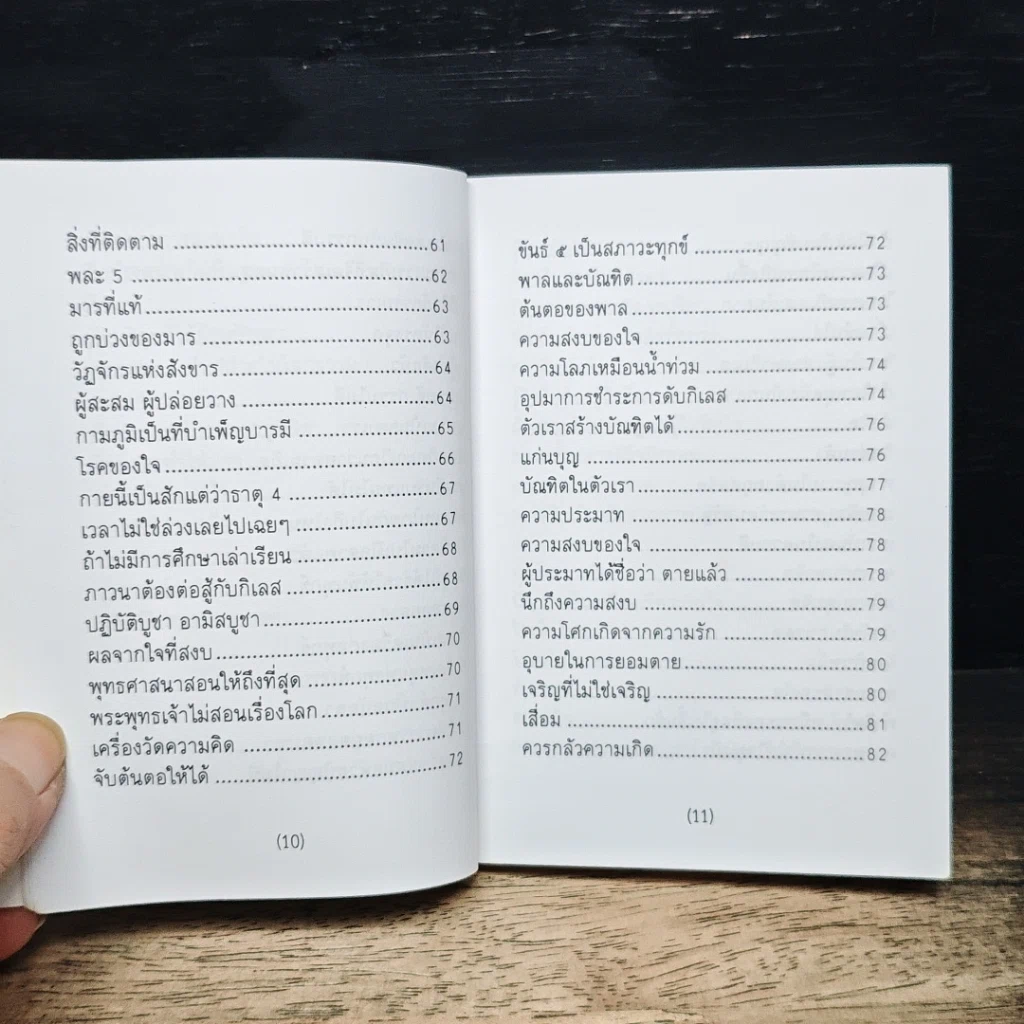 สิ่งที่ติดตาม ................................61
พละ 5 ......................................62
มารที่แท้......................................63
ถูกบ่วงของมาร ...............................63
วัฏจักรแห่งสังขาร.............................64
ผู้สะสม ผู้ปล่อยวาง ..........................64
กามภูมิเป็นที่บำเพ็ญบารมี ....................65
โรคของใจ...................................66
กายนี้เป็นสักแต่ว่าธาตุ 4 .....................67
เวลาไม่ใช่ล่วงเลยไปเฉยๆ ....................67
ถ้าไม่มีการศึกษาเล่าเรียน .....................68
ภาวนาต้องต่อสู้กับกิเลส ......................68
ปฏิบัติบูชา อามิสบูชา.........................69
ผลจากใจที่สงบ..............................70
พุทธศาสนาสอนให้ถึงที่สุด ...................70
พระพุทธเจ้าไม่สอนเรื่องโลก..................71
เครื่องวัดความคิด ...........................71
จับต้นตอให้ได้ ..............................72
(10)
ขันธ์ ๕ เป็นสภาวะทุกข์ ......................72
พาลและบัณฑิต..............................73
ต้นตอของพาล...............................73
ความสงบของใจ .............................73
ความโลภเหมือนน้ำท่วม .....................74
อุปมาการชำระการดับกิเลส ..................74
ตัวเราสร้างบัณฑิตได้.........................76
แก่นบุญ ....................................76
บัณฑิตในตัวเรา..............................77
ความประมาท ...............................78
ความสงบของใจ .............................78
ผู้ประมาทได้ชื่อว่า ตายแล้ว ..................78
นึกถึงความสงบ ..............................79
ความโศกเกิดจากความรัก ...................79
อุบายในการยอมตาย.........................80
เจริญที่ไม่ใช่เจริญ ...........................80
เสื่อม .......................................81
ควรกลัวความเกิด............................82
(11)